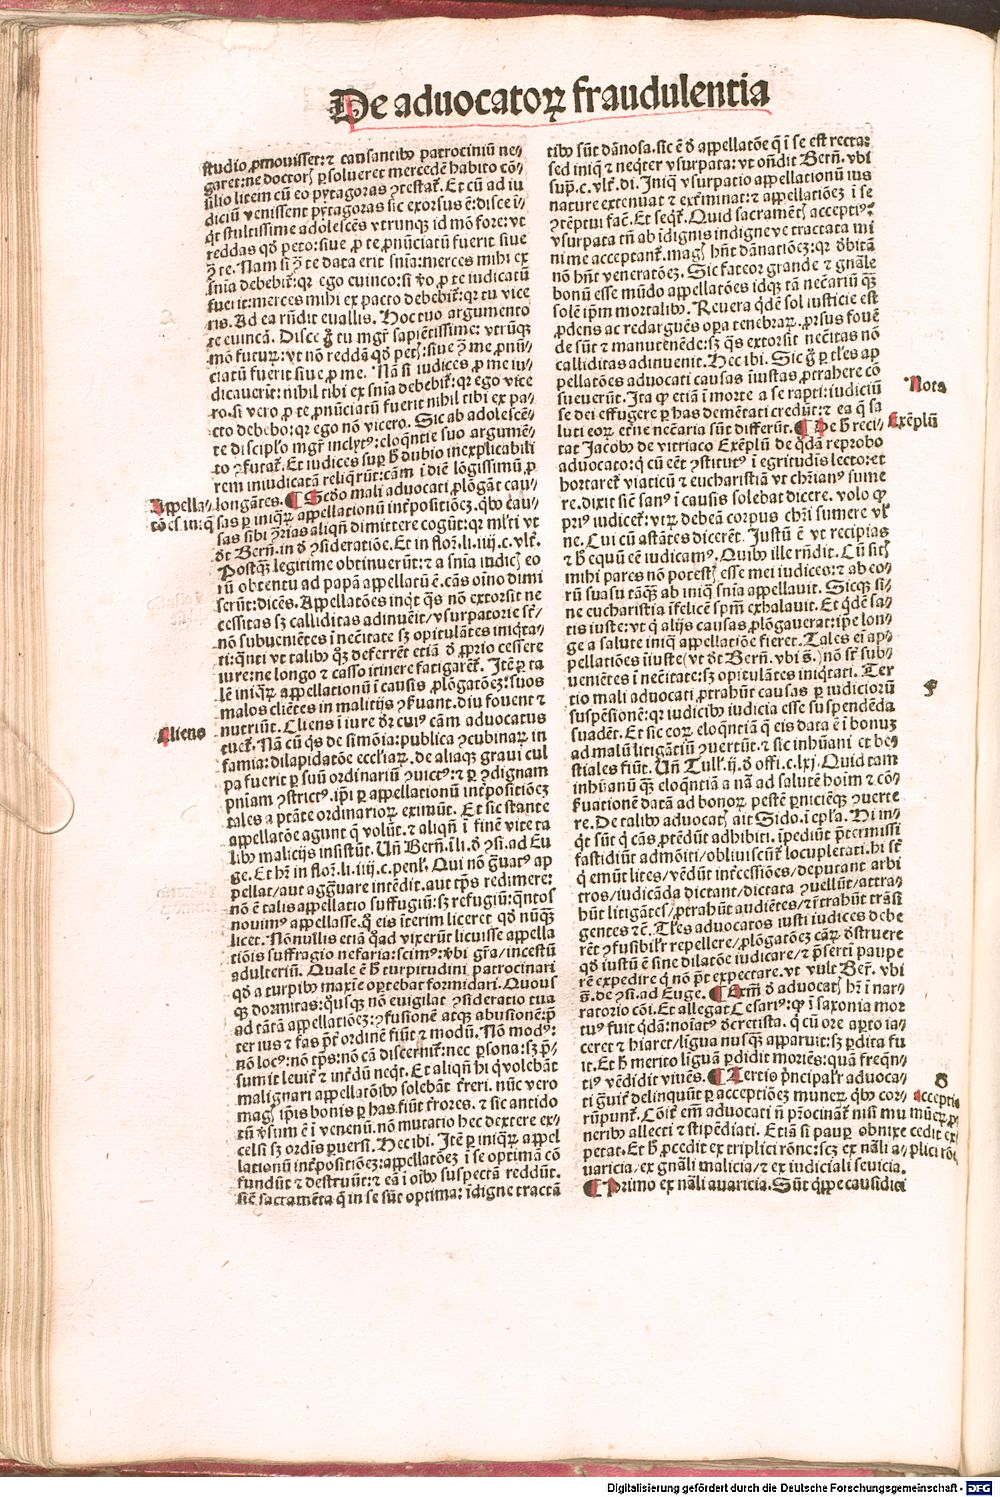 De aduocatoꝝ fraudulentia
studio ꝓmouisset: ⁊ causantibꝰ patrociniū ne⸗
garet: ne doctori ꝑsolueret mercedē habito cō⸗
silio litem cū eo pytagoras ꝯtestat̄. Et cū ad iu
diciū venissent pytagoras sic exorsus ē: disce i⸗
qͥt stultissime adolescēs vtrunqꝫ id mō fore: vt
reddas qd̄ peto: siue ꝓ te ꝓnūciatū fuerit siue
ꝯ̄ te. Nam si ꝯ̄ te data erit snīa: merces mihi ex
snīa debebit̄: qꝛ ego euinco: si v̄o ꝓ te iudicatū
fuerit: merces mihi ex pacto debebit̄: qꝛ tu vice
ris. Ad ea rn̄dit euallis. Hoc tuo argumento
te euincā. Disce gͦ tu mgr̄ sapiētissime: vtrūqꝫ
mō futuꝝ: vt nō reddā qd̄ petis: siue ꝯ̄ me ꝓnū⸗
ciatū fuerit siue ꝓ me. Nā si iudices ꝓ me iu⸗
dicauerīt: nihil tibi ex snīa debebit̄: qꝛ ego vice
ro. si vero ꝓ te ꝓnūciatū fuerit nihil tibi ex pa⸗
cto debebo: qꝛ ego nō vicero. Sic ab adolescē⸗
te discipło mgr̄ inclytꝰ: eloq̄ntie suo argumē⸗
to ꝯfutat̄. Et iudices suꝑ h̄ dubio inexplicabili
rem iniudicatā reliq̄rūt: cām i diē lōgissimū ꝓ
longātes. ¶ Scdo mali aduocati ꝓlōgāt cau⸗
sas ꝑ iniqͣꝝ appellationū inṫpositiōeꝫ. qͥbꝰ cau⸗
sas sibi ꝯ̄rias aliqn̄ dimittere cogūt: qꝛ ml̄ti vt
dt Bern̄. in d ꝯsideratiōe. Et in floꝝ. li. iiij. c. vlt̄.
Postqͣꝫ legitime obtinuerūt: ⁊ a snīa iudicis eo
rū obtentu ad papā appellatū ē. cās oīno dimi
serūt: dicēs. Appellatōes inqͥt qͣs nō extorsit ne
cessitas sꝫ calliditas adinueīt/ vsurpatorie st̄/
nō subueniētes i necītate sꝫ opitulātes iniqͥta⸗
ti: qͥnti vt talibꝰ qͥꝫ deferrēt etiā d ꝓprio cessere
iure: ne longo ⁊ casso itinere fatigarēt̄. Itē ꝑ ta
lē iniqͣꝝ appellationū i causis ꝓlōgatōeꝫ: suos
malos cliētes in malitijs ꝯfͣuant. diu fouent ⁊
nutriūt. Cliens i iure dr̄ cuiꝰ cām aduocatus
tuet̄. Nā cū qͥs de simōia: publica ꝯcubinaꝝ in
famia: dilapidatōe eccliaꝝ. de aliaqꝫ graui cul
pa fuerit ꝑ suū ordinariū ꝯuictꝰ: ⁊ ꝑ ꝯdignam
pn̄iam ꝯstrictꝰ. ip̄i ꝑ appellationū inṫpositiōeꝫ
tales a ptāte ordinarioꝝ eximūt. Et sic stante
appellatōe agunt q̄ volūt. ⁊ aliqn̄ i finē vite ta
libꝰ malicijs insistūt. Un̄ Bern̄. i li. d ꝯsi. ad Eu
ge. Et hr̄ in floꝝ. li. iiij. c. penl̄. Qui nō gͣuatꝰ ap
pellat/ aut aggͣuare intēdit. aut tp̄s redimere:
nō ē talis appellatio suffugiū: sꝫ refugiū: qͥntos
nouimꝰ appellasse. qͦ eis iterim liceret qd̄ nūqͣꝫ
licet. Nōnullis etiā qͦad vixerūt licuisse appella
tiōis suffragio nefaria: scimꝰ: vbi gr̄a/ incestū
adulteriū. Quale ē h̄ turpitudini patrocinari
qd̄ a turpibꝰ maxīe oꝑtebat formidari. Quous
qꝫ dormitas: qͦusqꝫ nō euigilat ꝯsideratio tua
ad tātā appellatiōeꝫ: ꝯfusionē atqꝫ abusionē: p̄
ter ius ⁊ fas p̄t ordinē fiūt ⁊ modū. Nō modꝰ:
nō locꝰ: nō tp̄s: nō cā discernit̄: nec ꝑsona: sꝫ p̄⸗
sumit leuit̄ ⁊ int̄dū neqͥt. Et aliqn̄ hi q̄ volebāt
malignari appellatōibꝰ solebāt t̄reri. nūc vero
magis ip̄is bonis ꝑ has fiūt t̄rores. ⁊ sic antido
tū v̄sum ē i venenū. nō mutatio hec dextere ex⸗
celsi sꝫ ordīs ꝑuersi. Hec ibi. Itē ꝑ iniqͣꝝ appel
lationū inṫpositiōeꝫ: appellatōeꝫ i se optimā cō
fundūt ⁊ destruūt: ⁊ eā i oībꝰ suspectā reddūt.
sic̄ sacramēta q̄ in se sūt optima: idigne tractā
Appella⸗
tōes iniq̄
Cliens
tibꝰ sūt dānosa. sic ē d appellatōe q̄ i se est rectar
sed iniq̄ ⁊ neqͥter vsurpata: vt on̄dit Bern̄. vbi
supͣ. c. vlt̄. di. Iniq̄ vsurpatio appellationū ius
nature extenuat ⁊ ext̄minat: ⁊ appellatiōeꝫ i se
ꝯtēptui facī. Et seqͥt̄. Quid sacramētis acceptiꝰ?
vsurpata tn̄ ab idignis indigne ve tractata mi
nime acceptant̄. magis hn̄t dānatiōeꝫ: qꝛ dbitā
nō hn̄t veneratōeꝫ. Sic fateor grande ⁊ gnāle
bonū esse mūdo appellatōes idqꝫ tā necāriū qͣꝫ
solē ip̄m mortalibꝰ. Reuera qͥdē sol iusticie est
ꝓdens ac redarguēs oꝑa tenebraꝝ. ꝓrsus fouē
de sūt ⁊ manutenēde: sꝫ qͣs extorsit necītas nō
calliditas adinuenit. Hec ibi. Sic gͦ ꝑ tłes ap
pellatōes aduocati causas iiustas ꝓtrahere cō
sueuerūt. Ita ꝙ etiā i morte a se rapti: iudiciū
se dei effugere ꝑ has demētati credūt: ⁊ ea q̄ sa
luti eoꝝ etne necāria sūt differūt. ¶ De h̄ reci⸗
tat Jacobꝰ de vitriaco Exēplū de qͦdā reprobo
aduocato: q̄ cū eēt ꝯstitutꝰ i egritudīs lecto: et
hortaret̄ viaticū ⁊ eucharistiā vt chr̄ianꝰ sume
re. dixit sic̄ sanꝰ i causis solebat dicere. volo ꝙ
priꝰ iudicet̄: vtꝝ debeā corpus chr̄i sumere vl̄
ne. Cui cū astātes dicerēt. Justū ē vt recipias
⁊ h̄ equū eē iudicamꝰ. Quibꝰ ille rn̄dit. Cū sitis
mihi pares nō potestis esse mei iudices: ⁊ ab eo⸗
rū sua su tāqͣꝫ ab iniq̄ snīa appellauit. Sicqꝫ si⸗
ne eucharistia ifelicē spm̄ exhalauit. Et qͥdē sa⸗
tis iuste: vt q̄ alijs causas ꝓlōgauerat: ip̄e lon⸗
ge a salute iniq̄ appellatiōe fieret. Tales ei ap⸗
pellatiōes iiuste (vt dt Bern̄. vbi s̄.) nō st̄ sub⸗
ueniētes i necītate: sꝫ opitulātes iniqͥtati. Ter
tio mali aduocati ꝓtrahūt causas ꝑ iudicioꝝ
suspēsionē: qꝛ iudicibꝰ iudicia esse suspendēda
suadēt. Et sic eoꝝ eloqͤntiā q̄ eis data ē i bonuꝫ
ad malū litigātiū ꝯuertūt. ⁊ sic inhūani et be⸗
stiales fiūt. Un̄ Tull̄. ij. d offi. c. lxj. Quid tam
inhūanū qͣꝫ eloqͤntiā a nā ad salutē hoīm ⁊ cō⸗
fͣuationē datā ad bonoꝝ pestē ꝑniciēqꝫ ꝯuerte
re. De talibꝰ aduocatis ait Sido. i epl̄a. Hi in⸗
qͥt sūt q̄ cās ꝓtēdūt adhibiti. ipediūt p̄termissi
fastidiūt admōiti/ obliuiscūt̄ locupletati. hi st̄
q̄ emūt lites/ vēdūt inṫcessiōes/ deputant arbi
tros/ iudicāda dictant/ dictata ꝯuellūt/ attra⸗
hūt litigātes/ ꝓtrahūt audiētes/ ⁊ ṫrahūt trāsi
gentes ⁊c̄. Tłes aduocatos iusti iudices debe
rēt ꝯfusibil̄r repellere/ ꝓlōgatōeꝫ cāꝝ dstruere
qd̄ iustū ē sine dilatōe iudicare/ ⁊ p̄serti paupe
rē expedire q̄ nō pt̄ expectare. vt vult Ber̄. vbi
s̄. de ꝯsi. ad Euge. ¶ Exm̄ d aduocatis hr̄ i nar⸗
ratorio cōi. Et allegat Cesariꝰ: ꝙ i saxonia mor
tuꝰ fuit qͥdā: noīatꝰ dcretista. q̄ cū ore aꝑto ia⸗
ceret ⁊ hiaret/ ligua nusqͣꝫ apparuit: sꝫ ꝑdita fu
it. Et h̄ merito liguā ꝑdidit moriēs: quā freqn̄⸗
tiꝰ vēdidit viuēs. ¶ Tertis pͥncipalr̄ aduoca⸗
ti gͣuit̄ delinquūt ꝑ acceptiōeꝫ muneꝝ qͥbꝰ cor⸗
rūpunt̄. Cōit̄ em̄ aduocati n̄ pͣtrocinanṫ nisi mu
neribꝰ allecti ⁊ stipēdiati. Etiā si pauꝑ obnixe
petat. Et h̄ ꝓcedit ex triplici rōne: scꝫ ex nāli a⸗
uaricia/ ex gnāli malicia/ ⁊ ex iudiciali seuicia.
¶ Primo ex nāli auaricia. Sūt qͥppe causidici
Nota
Exēplū
F
G
acceptio
munerꝝ ꝓ
cedit ex
plici rōe
Digitalisierung gefördert durch die Deutsche Forschungsgemeinschaft - DFG